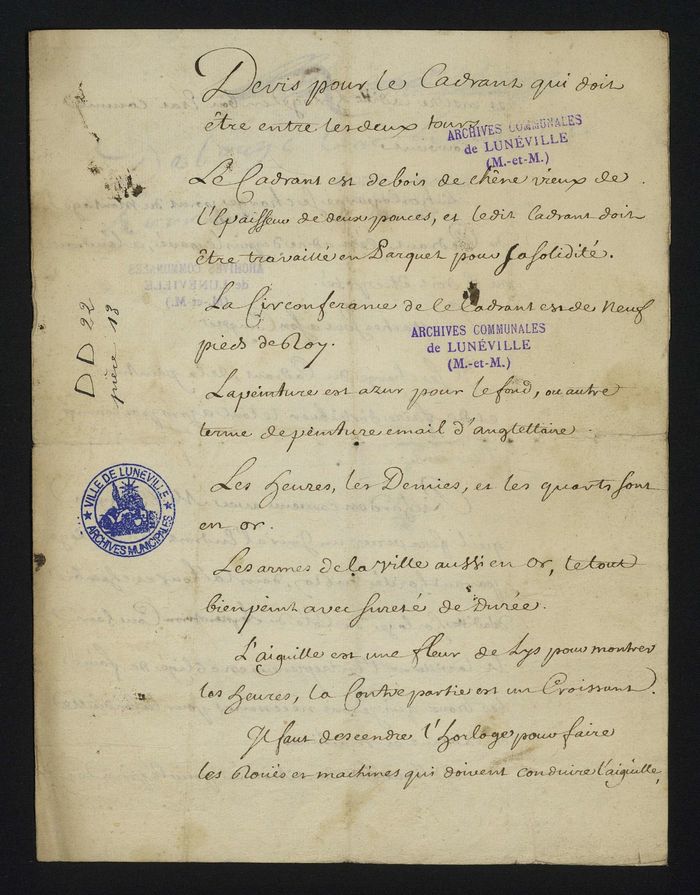 Devis pour le Cadrant qui doit
être entre les deux tours
ARCHIVES COMMUNALES
de LUNÉVILLE
(M.-et-M.)
Le Cadrant est de bois de chêne vieux de
l'Epaisseur de deux pouces, et ledit Cadrant doit
être travaillé en Parquet pour sa solidité.
La Circonferance de le Cadrant est de Neuf
pieds de Roy.
ARCHIVES COMMUNALES
de LUNÉVILLE
(M.-et-M.)
DD 22
pièce 13
La peinture est azur pour le fond, ou autre
terme de peinture email d'anglettaire.
Les Heures, les Demies, et les quarts sont
en or.
VILLE DE LUNÉVILLE
ARCHIVES MUNICIPALES
Les armes de la Ville aussi en Or, le tout
bien peint avec sureté de Durée.
L'aiguille est une fleur de Lys pour montrer
les Heures, la Contrepartie est un Croissant.
Il faut descendre l'Horloge pour faire
les Roües et machines qui doivent conduire l'aiguille,